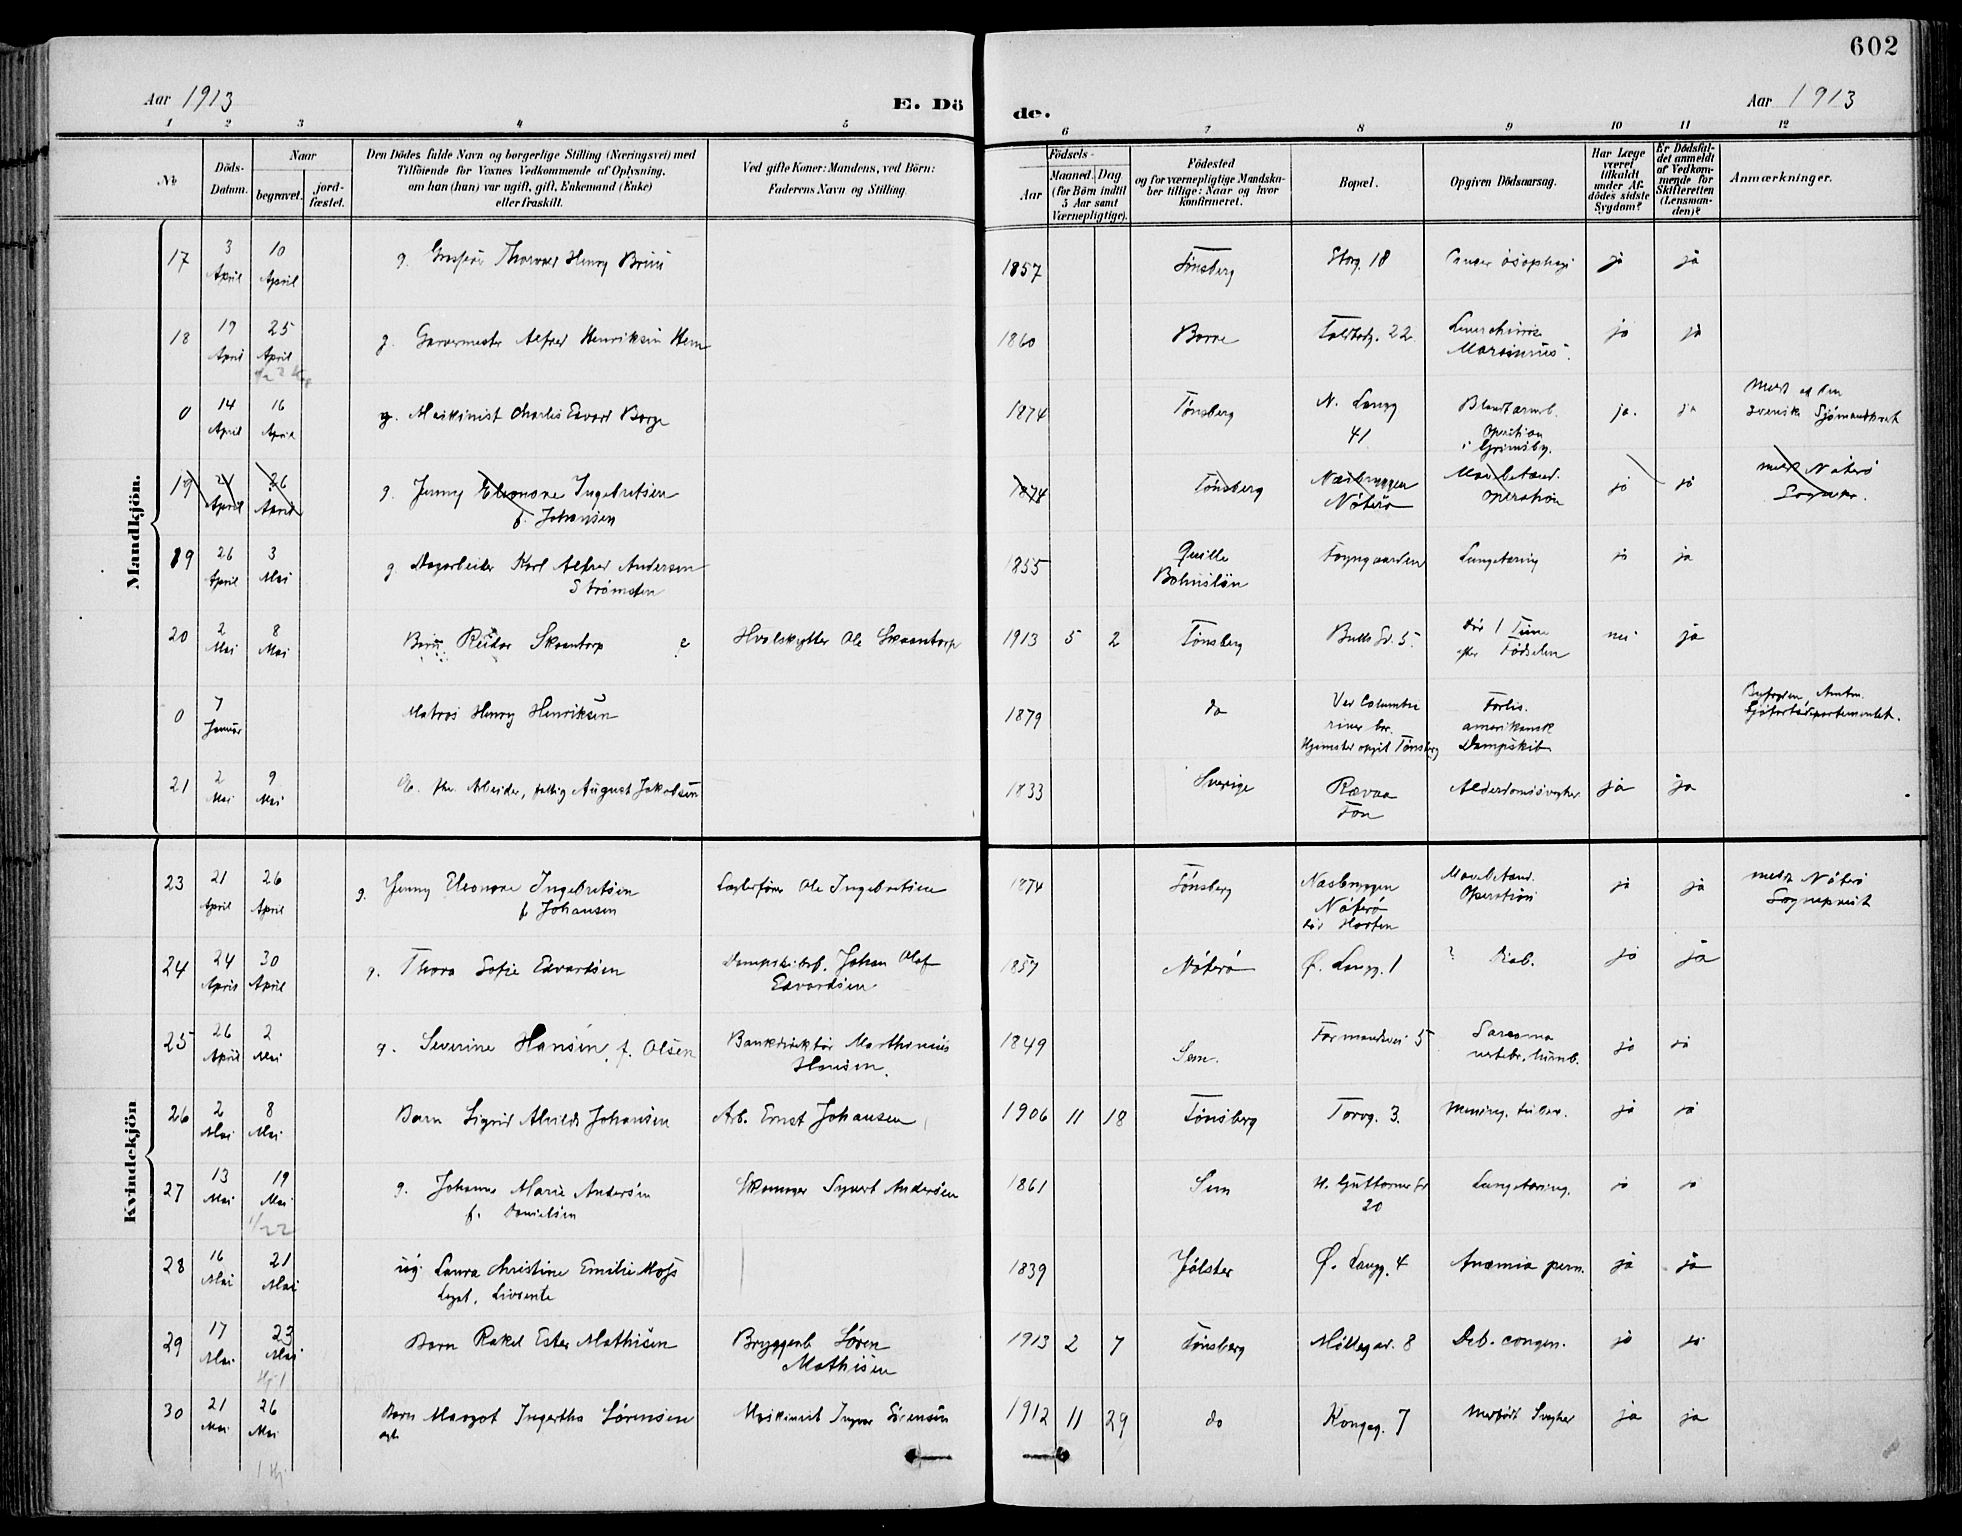 602
Aar 1913 E. Dö de. Aar 1913
1 2 3 4 5 6 7 8 9 10 11 12
No.
Döds-
Datum.
Naar
begravet.
jord-
fæstet.
Den Dödes fulde Navn og borgerlige Stilling (Næringsvei) med
Tilföiende for Voxnes Vedkommende af Oplysning,
om han (hun) var ugift, gift, Enkemand (Enke)
eller fraskilt.
Ved gifte Koner: Mandens, ved Börn:
Faderens Navn og Stilling.
Födsels-
Aar
Maaned. Dag
(for Börn indtil
5 Aar samt
Værnepligtige).
Födested
og for værnepligtige Mandska-
ber tillige: Naar og hvor
konfirmeret.
Bopæl.
Opgiven Dödsaarsag.
Har Læge
været
tilkaldt
under Af-
dödes sidste
Sygdom?
Er Dödsfal-
det anmeldt
af Vedkom-
mende for
Skifteretten
(Lensman-
den)?
Anmærkninger.
Mandkjön.
17 3 April 10 April g. Thorvald Henry Bruu 1857 Tönsberg Storg. 18 Cancer ösophagi ja ja
18 19 April 25 April g. Garvermester Alfred Henriksen Hem 1860 Borre Toldbodg. 22. ja ja
0 14 April 16 April g. Maskinist Charles Edvard Borge 1874 Tönsberg N. Langg 41 Blindtarmb. Operation i Grimsby. ja. ja Meldt af den svensk Sjömandsprest
19 21 April 26 April g. Jenny Eleonore Ingebretsen f. Johansen 1874 Tönsberg Næsbryggen Nöterö Mavebetænd. Operation ja ja meldt Nöterö Sognepr.
19 26 April 3 Mai g. Dagarbeider Karl Alfred Andersen Strömsten 1855 Quille Bohuslän Foyngaarden Lungetæring ja ja
20 2 Mai 8 Mai Barn Reidar Skaantorp e Hvalskytter Ole Skaantorp 1913 5 2 Tönsberg Bulls Gd. 5. död 1 Time efter Födselen nei ja
0 7 Januar Matros Henry Henriksen 1879 do Ved Columbia river bar. Hjemsted opgit Tönsberg Forlis. amerikansk Dampskib
21 2 Mai 9 Mai E. fhv. Arbeider, fattig August Jakobsen 1833 Sverige Rævaa Fon Alderdomssvaghed ja ja
Kvindekjön
23 21 April 26 April g. Jenny Eleonore Ingebretsen f. Johansen Ole Ingebretsen 1874 Tönsberg Næsbryggen Nöterö död Horten Mavebetænd. Operation ja ja meldt Nöterö Sogneprest
24 24 April 30 April g. Thora Sofie Edvardsen Dampskibsb. Johan Olaf Edvardsen 1857 Nöterö Ö. Langg. 1 ? Diab. ja ja
25 26 April 2 Mai g. Severine Hansen, f. Olsen Bankdirektör Marthinius Hansen. 1849 Sem. Farmandsvei 5 Sarcoma vertebr. lumb. ja ja
26 2 Mai 8 Mai Barn Sigrid Alvilde Johansen Arb. Ernst Johansen 1906 11 18 Tönsberg Torvg. 3. Mening. tuberc. ja ja
27 13 Mai 19 Mai g. Johanne Marie Andersen f. Danielsen Skomager Syvert Andersen 1861 Sem H. Guttormsgd 20 Lungetæring. ja ja
28 16 Mai 21 Mai ug. Laura Christine Emilie Moss Legat, Livrente 1839 Jölster Ö. Langg. 4 Anæmia pern. ja ja
29 17 Mai 23 Mai Barn Rakel Ester Mathisen Bryggearb Sören Mathisen 1913 2 7 Tönsberg Möllegad. 8 Deb. congen. ja ja
30 21 Mai 26 Mai Barn Margot Ingertha Sörensen Maskinist Ingvar Sörensen 1912 11 29 do Kongeg. 7 Medfödt Svaghed ja ja